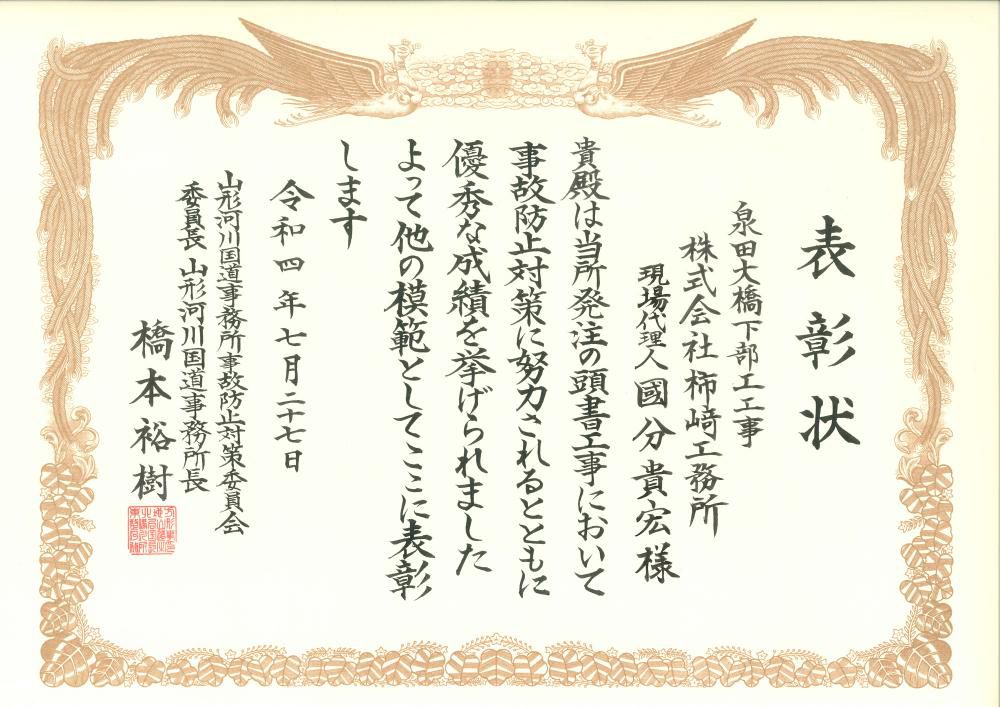 表彰状
泉田大橋下部工工事
株式会社柿﨑工務所
現場代理人 國分貴宏様
貴殿は当所発注の頭書工事において
事故防止対策に努力されるとともに
優秀な成績を挙げられました
よって他の模範としてここに表彰
します
令和四年七月二十七日
山形河川国道事務所事故防止対策委員会
委員長 山形河川国道事務所長
橋本裕樹